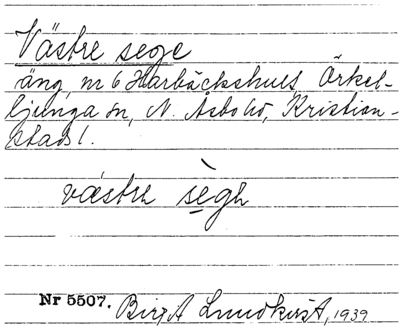 Västre sege
äng, nr 6 Harbäckshult, Örkel-
ljunga sn, N. Åsbo hd, Kristian-
stads l.
västrə
Nr 5507. Birgit Lundkvist, 1939